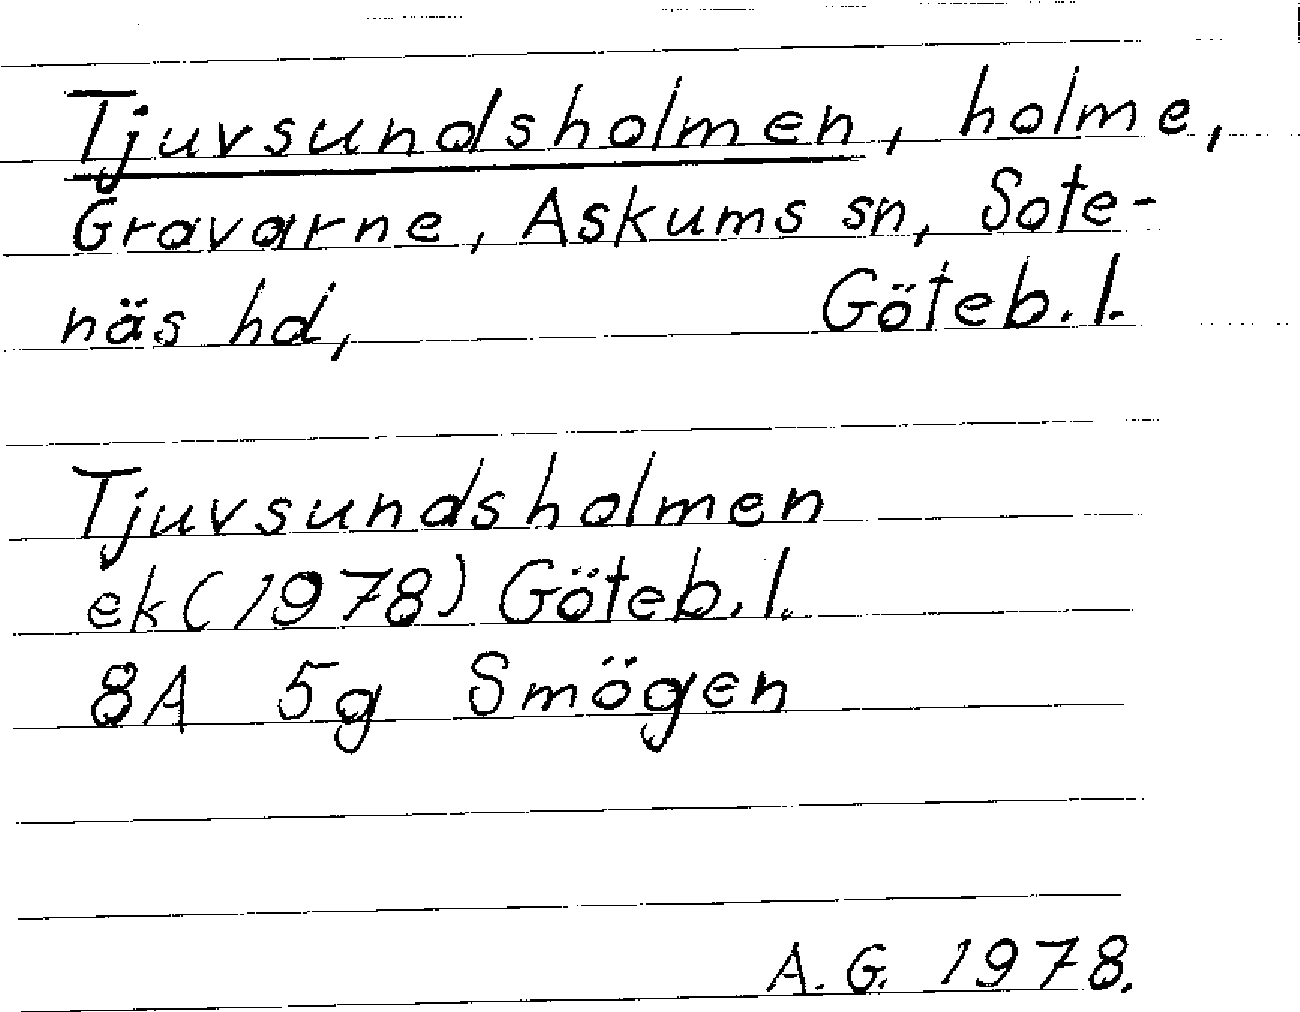 Tjuvsundsholmen, holme,
Gravarne, Askums sn, Sote-
näs hd, Göteb. l.
Tjuvsundsholmen
ek (1978) Göteb. l.
8A 5g Smögen
A. G. 1978.